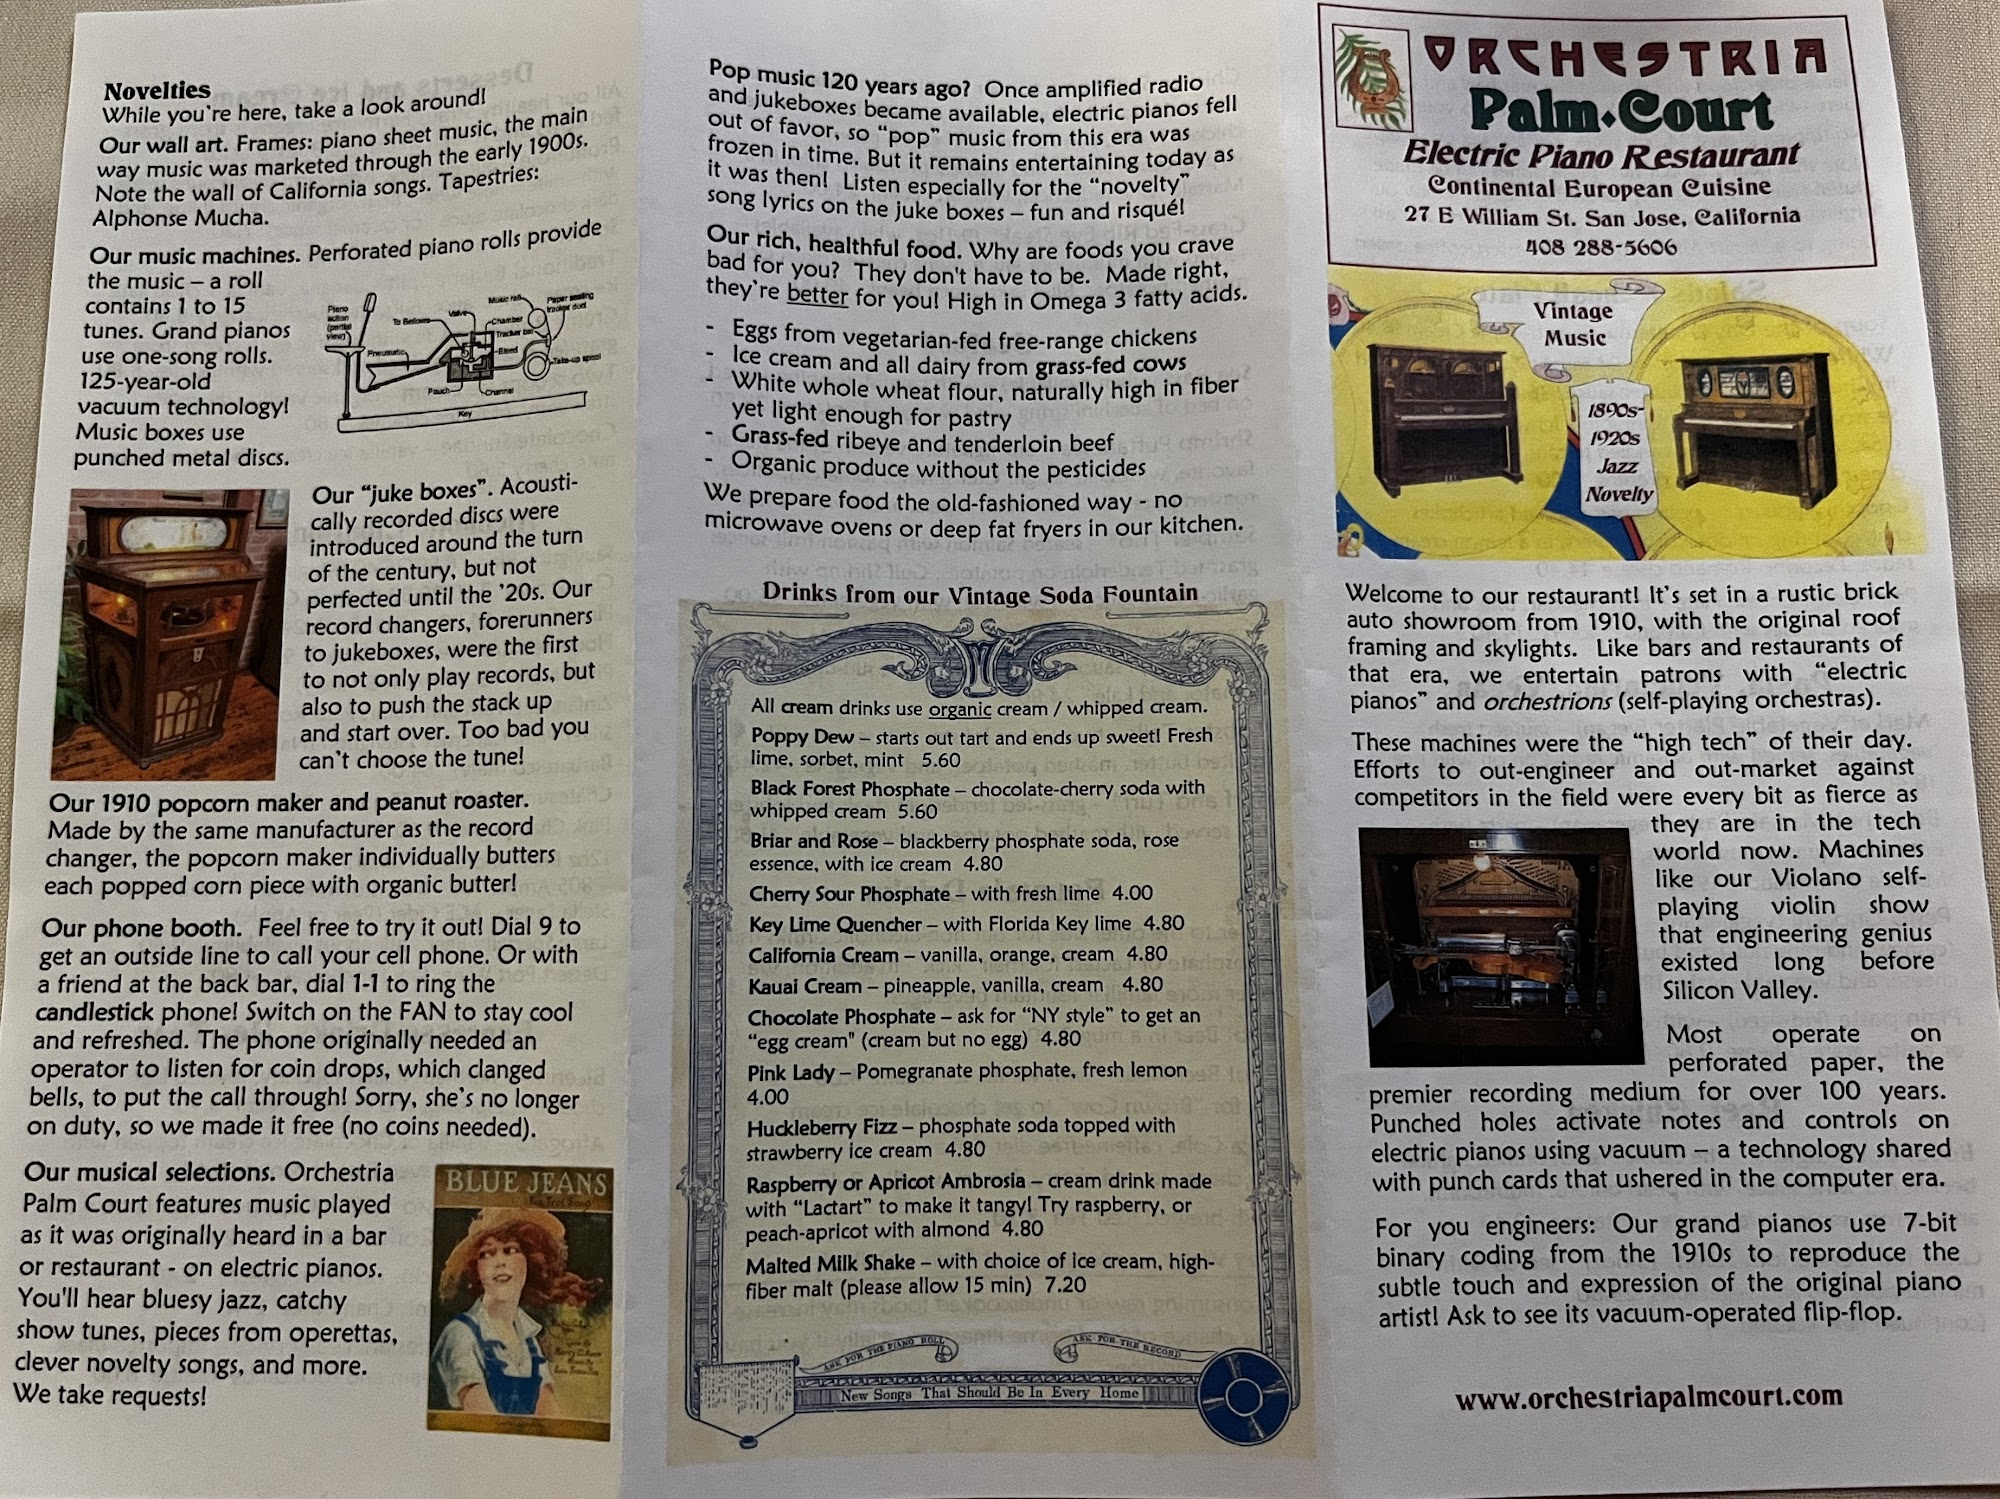 Novelties
While you're here, take a look around!
Our wall art. Frames: piano sheet music, the main
way music was marketed through the early 1900s.
Note the wall of California songs. Tapestries:
Alphonse Mucha.
Our music machines. Perforated piano rolls provide
the music – a roll
contains 1 to 15
tunes. Grand pianos
use one-song rolls.
125-year-old
vacuum technology!
Music boxes use
punched metal discs.
Piano
action
(partial
view)
To Bellows
Valve
Music roll
Chamber
Paper sensing
tracker duct
Tracker bar
Pneumatic
Bleed
Take-up spool
Pouch
Channel
Key
Our "juke boxes". Acousti-
cally recorded discs were
introduced around the turn
of the century, but not
perfected until the '20s. Our
record changers, forerunners
to jukeboxes, were the first
to not only play records, but
also to push the stack up
and start over. Too bad you
can't choose the tune!
Our 1910 popcorn maker and peanut roaster.
Made by the same manufacturer as the record
changer, the popcorn maker individually butters
each popped corn piece with organic butter!
Our phone booth. Feel free to try it out! Dial 9 to
get an outside line to call your cell phone. Or with
a friend at the back bar, dial 1-1 to ring the
candlestick phone! Switch on the FAN to stay cool
and refreshed. The phone originally needed an
operator to listen for coin drops, which clanged
bells, to put the call through! Sorry, she's no longer
on duty, so we made it free (no coins needed).
Our musical selections. Orchestria
Palm Court features music played
as it was originally heard in a bar
or restaurant - on electric pianos.
You'll hear bluesy jazz, catchy
show tunes, pieces from operettas,
clever novelty songs, and more.
We take requests!
BLUE JEANS
Fox Trot Song
Pop music 120 years ago? Once amplified radio
and jukeboxes became available, electric pianos fell
out of favor, so "pop" music from this era was
frozen in time. But it remains entertaining today as
it was then! Listen especially for the "novelty"
song lyrics on the juke boxes – fun and risqué!
Our rich, healthful food. Why are foods you crave
bad for you? They don't have to be. Made right,
they're better for you! High in Omega 3 fatty acids.
- Eggs from vegetarian-fed free-range chickens
- Ice cream and all dairy from grass-fed cows
- White whole wheat flour, naturally high in fiber
yet light enough for pastry
- Grass-fed ribeye and tenderloin beef
- Organic produce without the pesticides
We prepare food the old-fashioned way - no
microwave ovens or deep fat fryers in our kitchen.
Drinks from our Vintage Soda Fountain
All cream drinks use organic cream / whipped cream.
Poppy Dew – starts out tart and ends up sweet! Fresh
lime, sorbet, mint 5.60
Black Forest Phosphate – chocolate-cherry soda with
whipped cream 5.60
Briar and Rose – blackberry phosphate soda, rose
essence, with ice cream 4.80
Cherry Sour Phosphate – with fresh lime 4.00
Key Lime Quencher – with Florida Key lime 4.80
California Cream – vanilla, orange, cream 4.80
Kauai Cream – pineapple, vanilla, cream 4.80
Chocolate Phosphate – ask for "NY style" to get an
"egg cream" (cream but no egg) 4.80
Pink Lady – Pomegranate phosphate, fresh lemon
4.00
Huckleberry Fizz – phosphate soda topped with
strawberry ice cream 4.80
Raspberry or Apricot Ambrosia – cream drink made
with "Lactart" to make it tangy! Try raspberry, or
peach-apricot with almond 4.80
Malted Milk Shake – with choice of ice cream, high-
fiber malt (please allow 15 min) 7.20
ASK FOR THE PIANO ROLL
ASK FOR THE RECORD
New Songs That Should Be In Every Home
ORCHESTRIA
Palm Court
Electric Piano Restaurant
Continental European Cuisine
27 E William St. San Jose, California
408 288-5606
Vintage
Music
1890s-
1920s
Jazz
Novelty
Welcome to our restaurant! It's set in a rustic brick
auto showroom from 1910, with the original roof
framing and skylights. Like bars and restaurants of
that era, we entertain patrons with "electric
pianos" and orchestrions (self-playing orchestras).
These machines were the "high tech" of their day.
Efforts to out-engineer and out-market against
competitors in the field were every bit as fierce as
they are in the tech
world now. Machines
like our Violano self-
playing violin show
that engineering genius
existed long before
Silicon Valley.
Most operate on
perforated paper, the
premier recording medium for over 100 years.
Punched holes activate notes and controls on
electric pianos using vacuum – a technology shared
with punch cards that ushered in the computer era.
For you engineers: Our grand pianos use 7-bit
binary coding from the 1910s to reproduce the
subtle touch and expression of the original piano
artist! Ask to see its vacuum-operated flip-flop.
www.orchestriapalmcourt.com